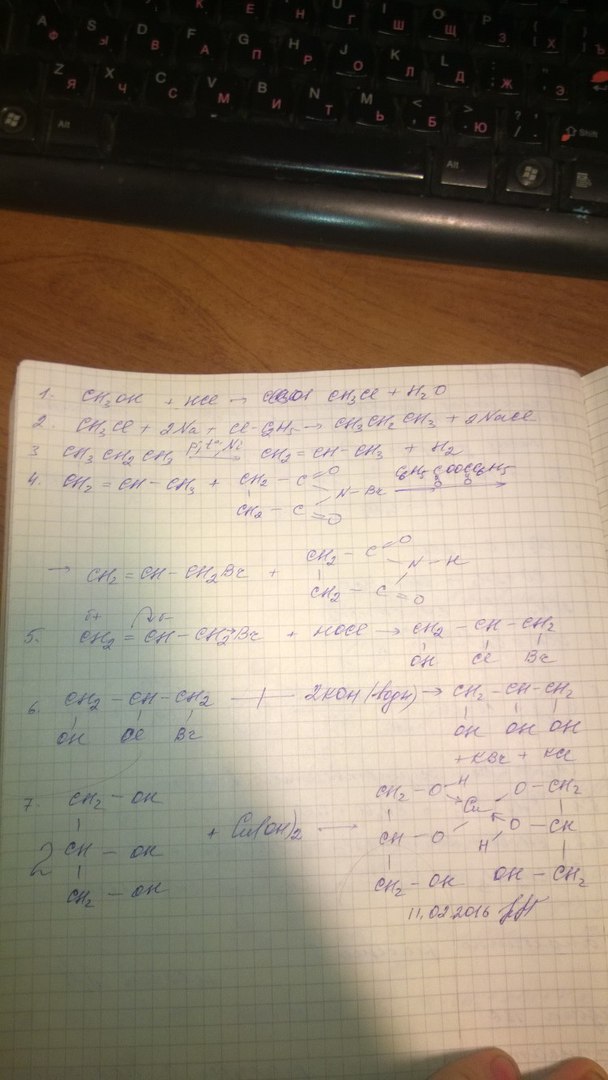 A Ф S Ы D В F А G П H Р J О K Л L Д : ; Ж " ' Э
Z Я X Ч C С V М B И N Т M Ь < , Б > . Ю ? / Shift
Alt Alt
1. CH3OH + HCl → CH3Cl + H2O
2. CH3Cl + 2Na + Cl-C2H5 → CH3CH2CH3 + 2NaCl
3 CH3CH2CH3 p,t°,Ni → CH2=CH-CH3 + H2
4. CH2=CH-CH3 + CH2-C=O N-Br C6H5COOCC6H5 →
CH2-C=O O O
→ CH2=CH-CH2Br + CH2-C=O N-H
CH2-C=O
δ+ δ-
5. CH2=CH-CH2→Br + HOCl → CH2-CH-CH2
OH Cl Br
6. CH2-CH-CH2 + 2KOH (водн) → CH2-CH-CH2
OH Cl Br OH OH OH
+ KBr + KCl
7. CH2-OH CH2-O H Cu O-CH2
2 CH-OH + Cu(OH)2 → CH-O H O-CH
CH2-OH CH2-OH OH-CH2
11.02.2016